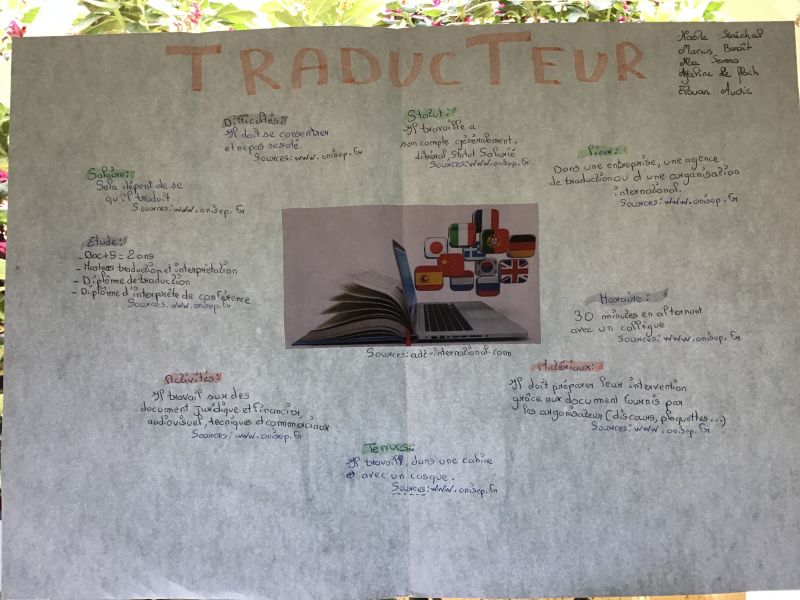 TRADUCTEUR
Marius Benoît
Erwan Audic
Difficultés:
Il doit se consentrer
et ne pas se raté
Sources: www.onisep.fr
Statut:
Il travaille a
son compte généralement.
libéral, Statut Salarié
Sources: www.onisep.fr
Lieux:
Dans une entreprise, une agence
de traduction ou d'une organisation
international.
Sources: www.onisep.fr
Salaire:
Sela dépent de se
qu'il traduit
Sources: www.onisep.fr
Etude:
- Bac+5 = 2 ans
- Masters traduction et interprétation
- Diplôme de traduction
- Diplôme d'interprète de conférence
Sources: www.onisep.fr
Horaire:
30 minutes en alternant
avec un collègue
Sources: www.onisep.fr
Sources: adt-international.com
Activités:
Il travail sur des
document juridique et financier,
audiovisuel, tecniques et commerciaux
Sources: www.onisep.fr
Matériaux:
Il doit préparer leur intervention
grâce aux document fournis par
les organisateur (discours, plaquettes...)
Sources: www.onisep.fr
Tenues:
Il travaille dans une cabine
et avec un casque.
Sources: www.onisep.fr